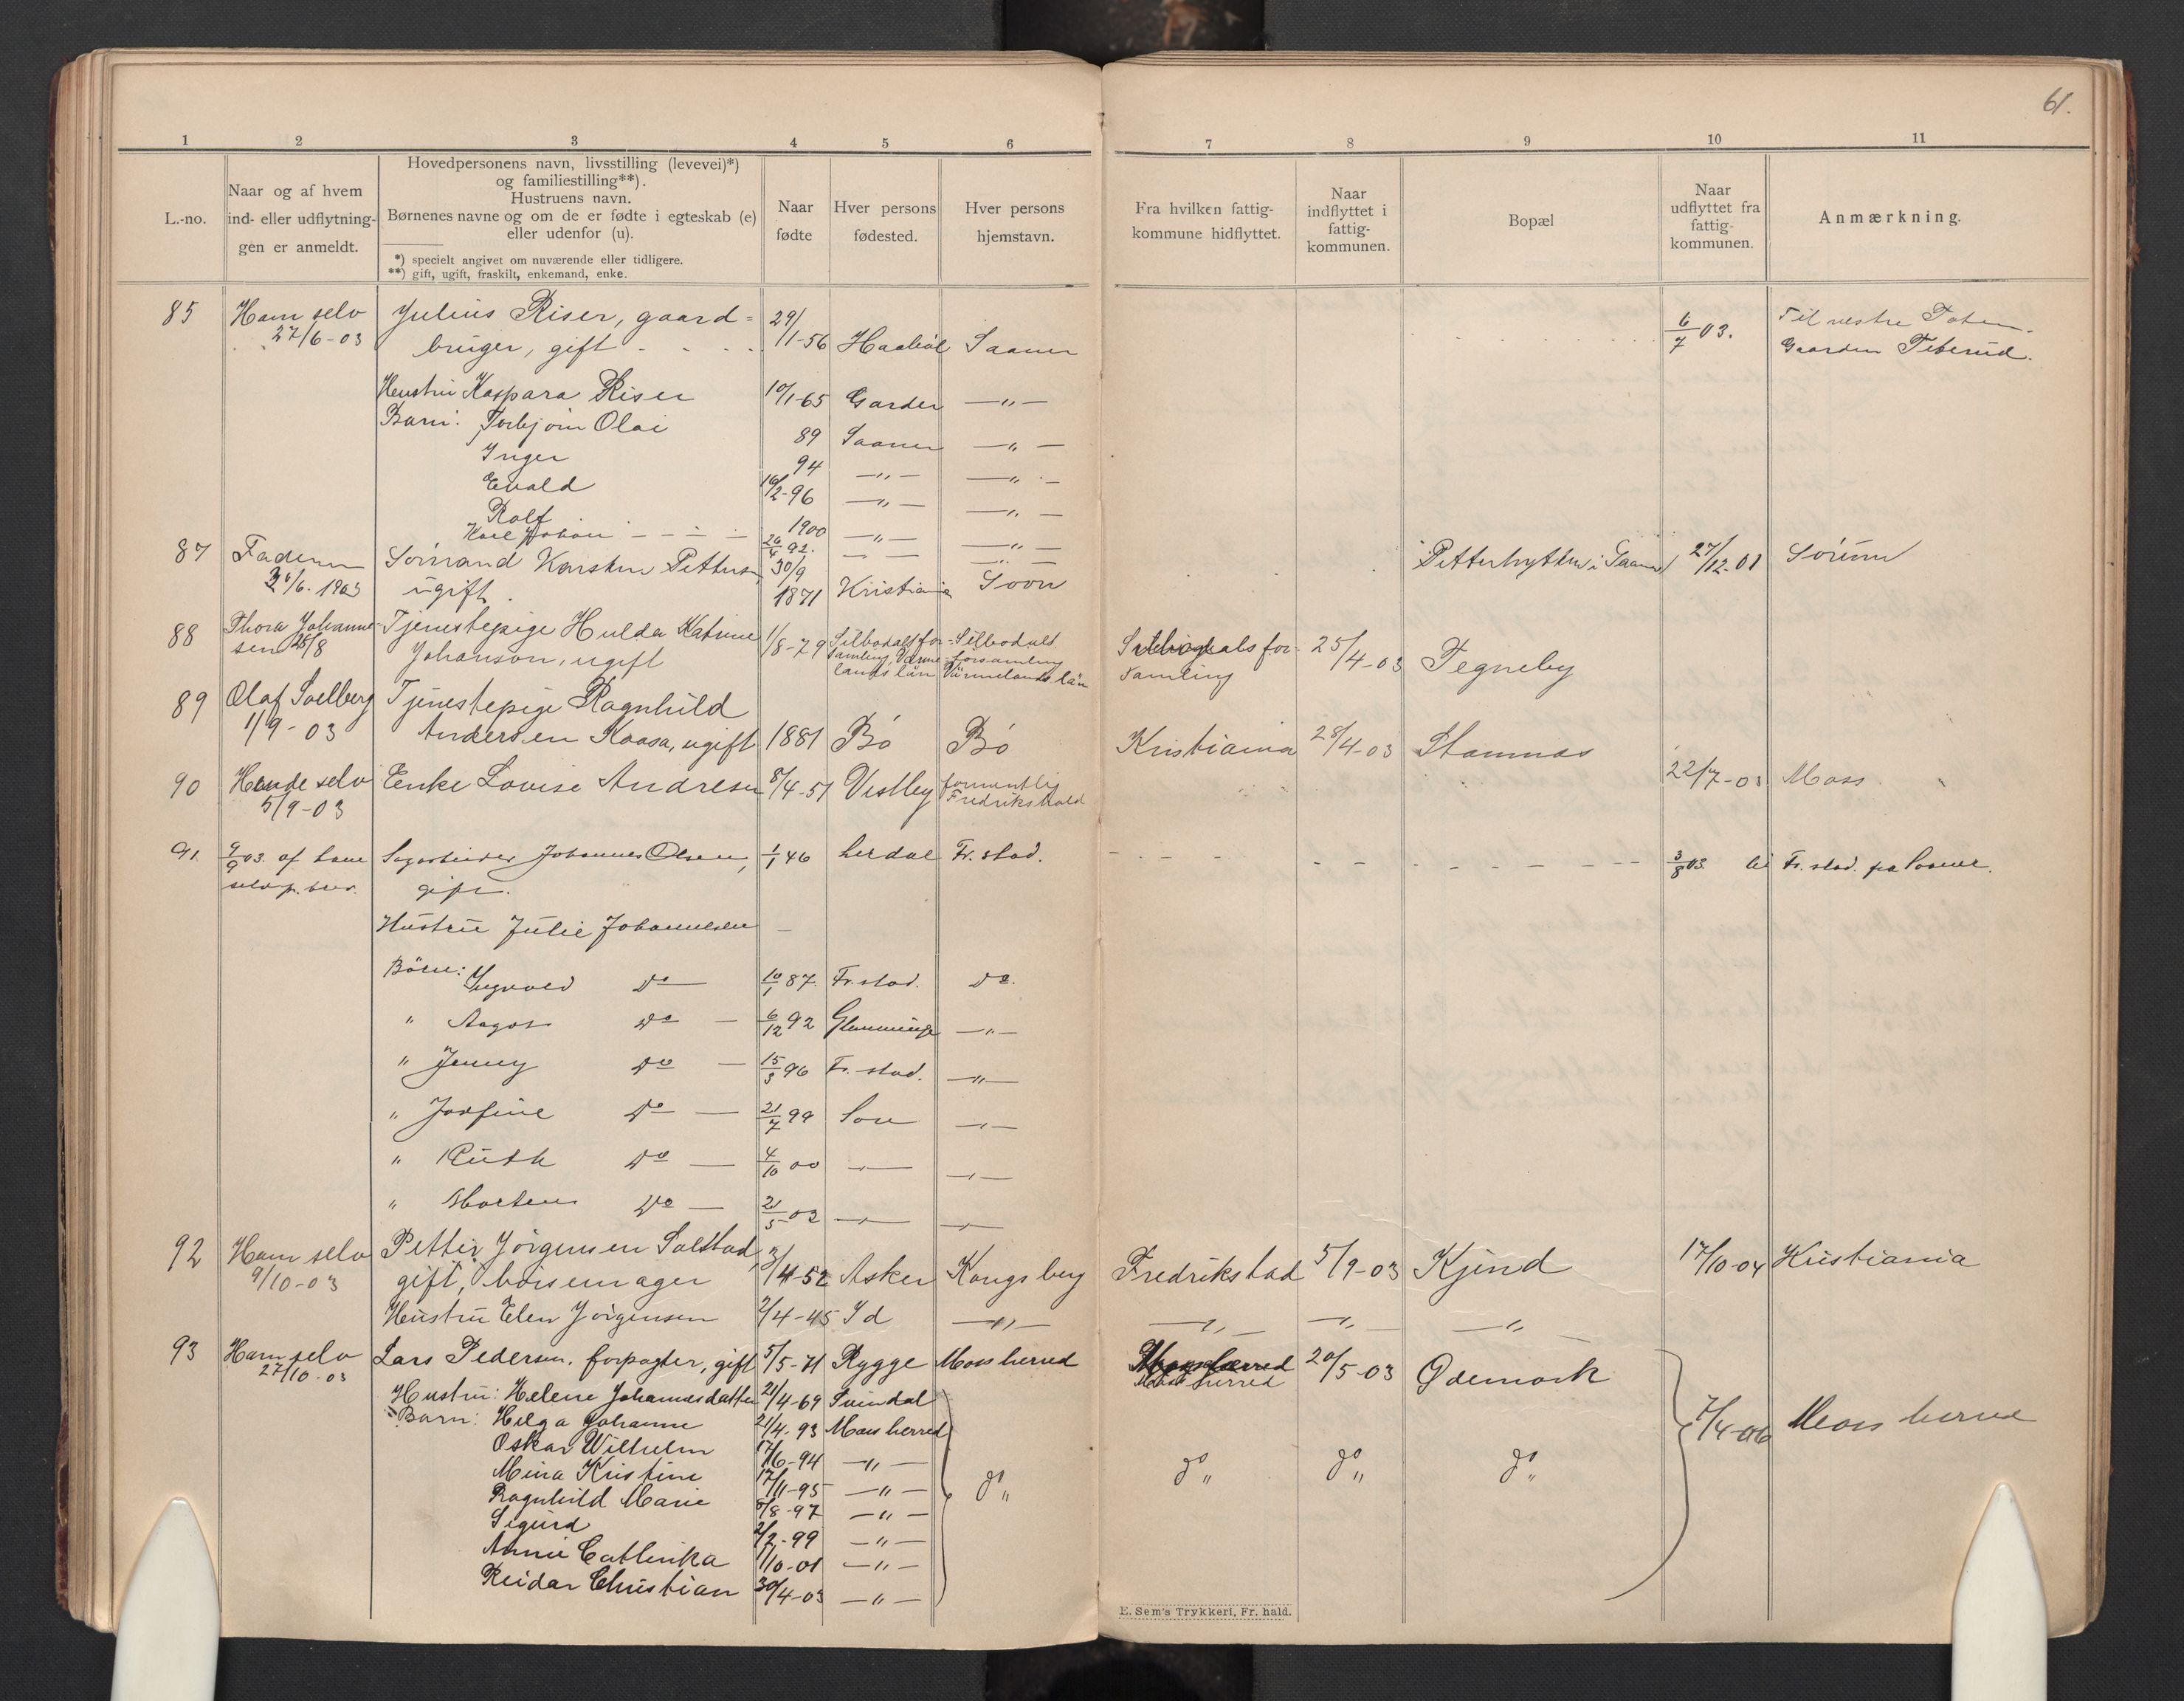 61.
1 2 3 4 5 6 7 8 9 10 11
L.-no.
Naar og af hvem
ind- eller udflytnin-
gen er anmeldt.
Hovedpersonens navn, livsstilling (levevei)*)
og familiestilling**).
Hustruens navn.
Børnenes navne og om de er fødte i egteskab (e)
eller udenfor (u).
*) specielt angivet om nuværende eller tidligere.
**) gift, ugift, fraskilt, enkemand, enke.
Naar
fødte
Hver persons
fødested.
Hver persons
hjemstavn.
Fra hvilken fattig-
kommune hidflyttet.
Naar
indflyttet i
fattig-
kommunen.
Bopæl
Naar
udflyttet fra
fattig-
kommunen.
Anmærkning.
85 Ham selv Julius Riser, gaard= 29/ 6/7 03. Til vestre Toten.
27/6-03 bruger, gift 1-56 Haabøl Saaner Gaarden Teterud.
Hustru Kaspara Riser 10/1-65 Garder —"—
Barn: Torbjørn Olai 89 Saaner —"—
Inger 94 —"— —"—
Evald 16/2-96 —"— —"—
Rolf 1900 —"— —"—
Karl Johan 26/4 92. — — —"—
87 Faderen Sørmand Karsten Pettersen 30/9 Petterhytten i Saaner 27/12-01 Sørum
26/6. 1903 ugift. 1871 Kristiania Soon
88 Thora Johanne- Tjenestepige Hulda Katrine 1/8-79 Silbodalsfor- Silbodals
sen 28/8 Johanson, ugift samling, Värme- forsamling
landslän Värmelands län
Silbodals for- 25/4-03 Tegneby
samling
89 Olaf Solberg Tjenestepige Ragnhild
1/9-03 Andersen Kaasa, ugift 1881 Bö Bö Kristiania 28/4-03 Stamnas
90 Hende selv Enke Lovise Andresen 8/4-51 Vestby formentlig 22/7-03 Moss
5/9-03 Fredrikshald
91. 9/9 03. af ham Sagarbeider Johannes Olsen, 1/1 46 Fr. stad. 3/8 03 til Fr. stad. fra Saaner.
selv p. brev. gift.
Hustru Julie Johannesen —
Börn: Sigvald Do — 10/1 87. Fr. stad. Do.
" Aagot Do — 6/12 92 Glemminge —"—
" Jenny Do — 15/3 96 Fr. stad. —"—
" Josfine Do — 21/7 99 Son —"—
" Ruth Do — 4/10 00 —"— —"—
" Morten Do — 21/5 02 —"— —"—
92 Ham selv Petter Jörgensen Saltbad, 3/
9/10-03 gift, børsemager 4-52 Asker Kongsberg Fredrikstad 5/9-03 Kjind 17/10-04 Kristiania
Hustru Elen Jörgensen 2/4-45 Id —"— —"— —"— —"—
93 Ham selv Lars Pedersen. forpagter, gift 5/5-71 Rygge Moss herred Moss herred 20/5-03 Ødemark
27/10-03
Hustru: Helene Johannesdatter 21/4-69 Svindal
Barn: Helga Johanne 21/4-93 Moss herred 7/4-06 Moss herred
Oskar Wilhelm 17/6-94 —"—
Mina Kristine 17/11-95 —"— do" do" do" do"
Ragnhild Marie 8/8-97 —"—
Sigurd 2/2-99 —"—
Annie Cathinka 1/10-01 —"—
Reidar Christian 30/4-03 —"—
E. Sem's Trykkeri, Fr. hald.